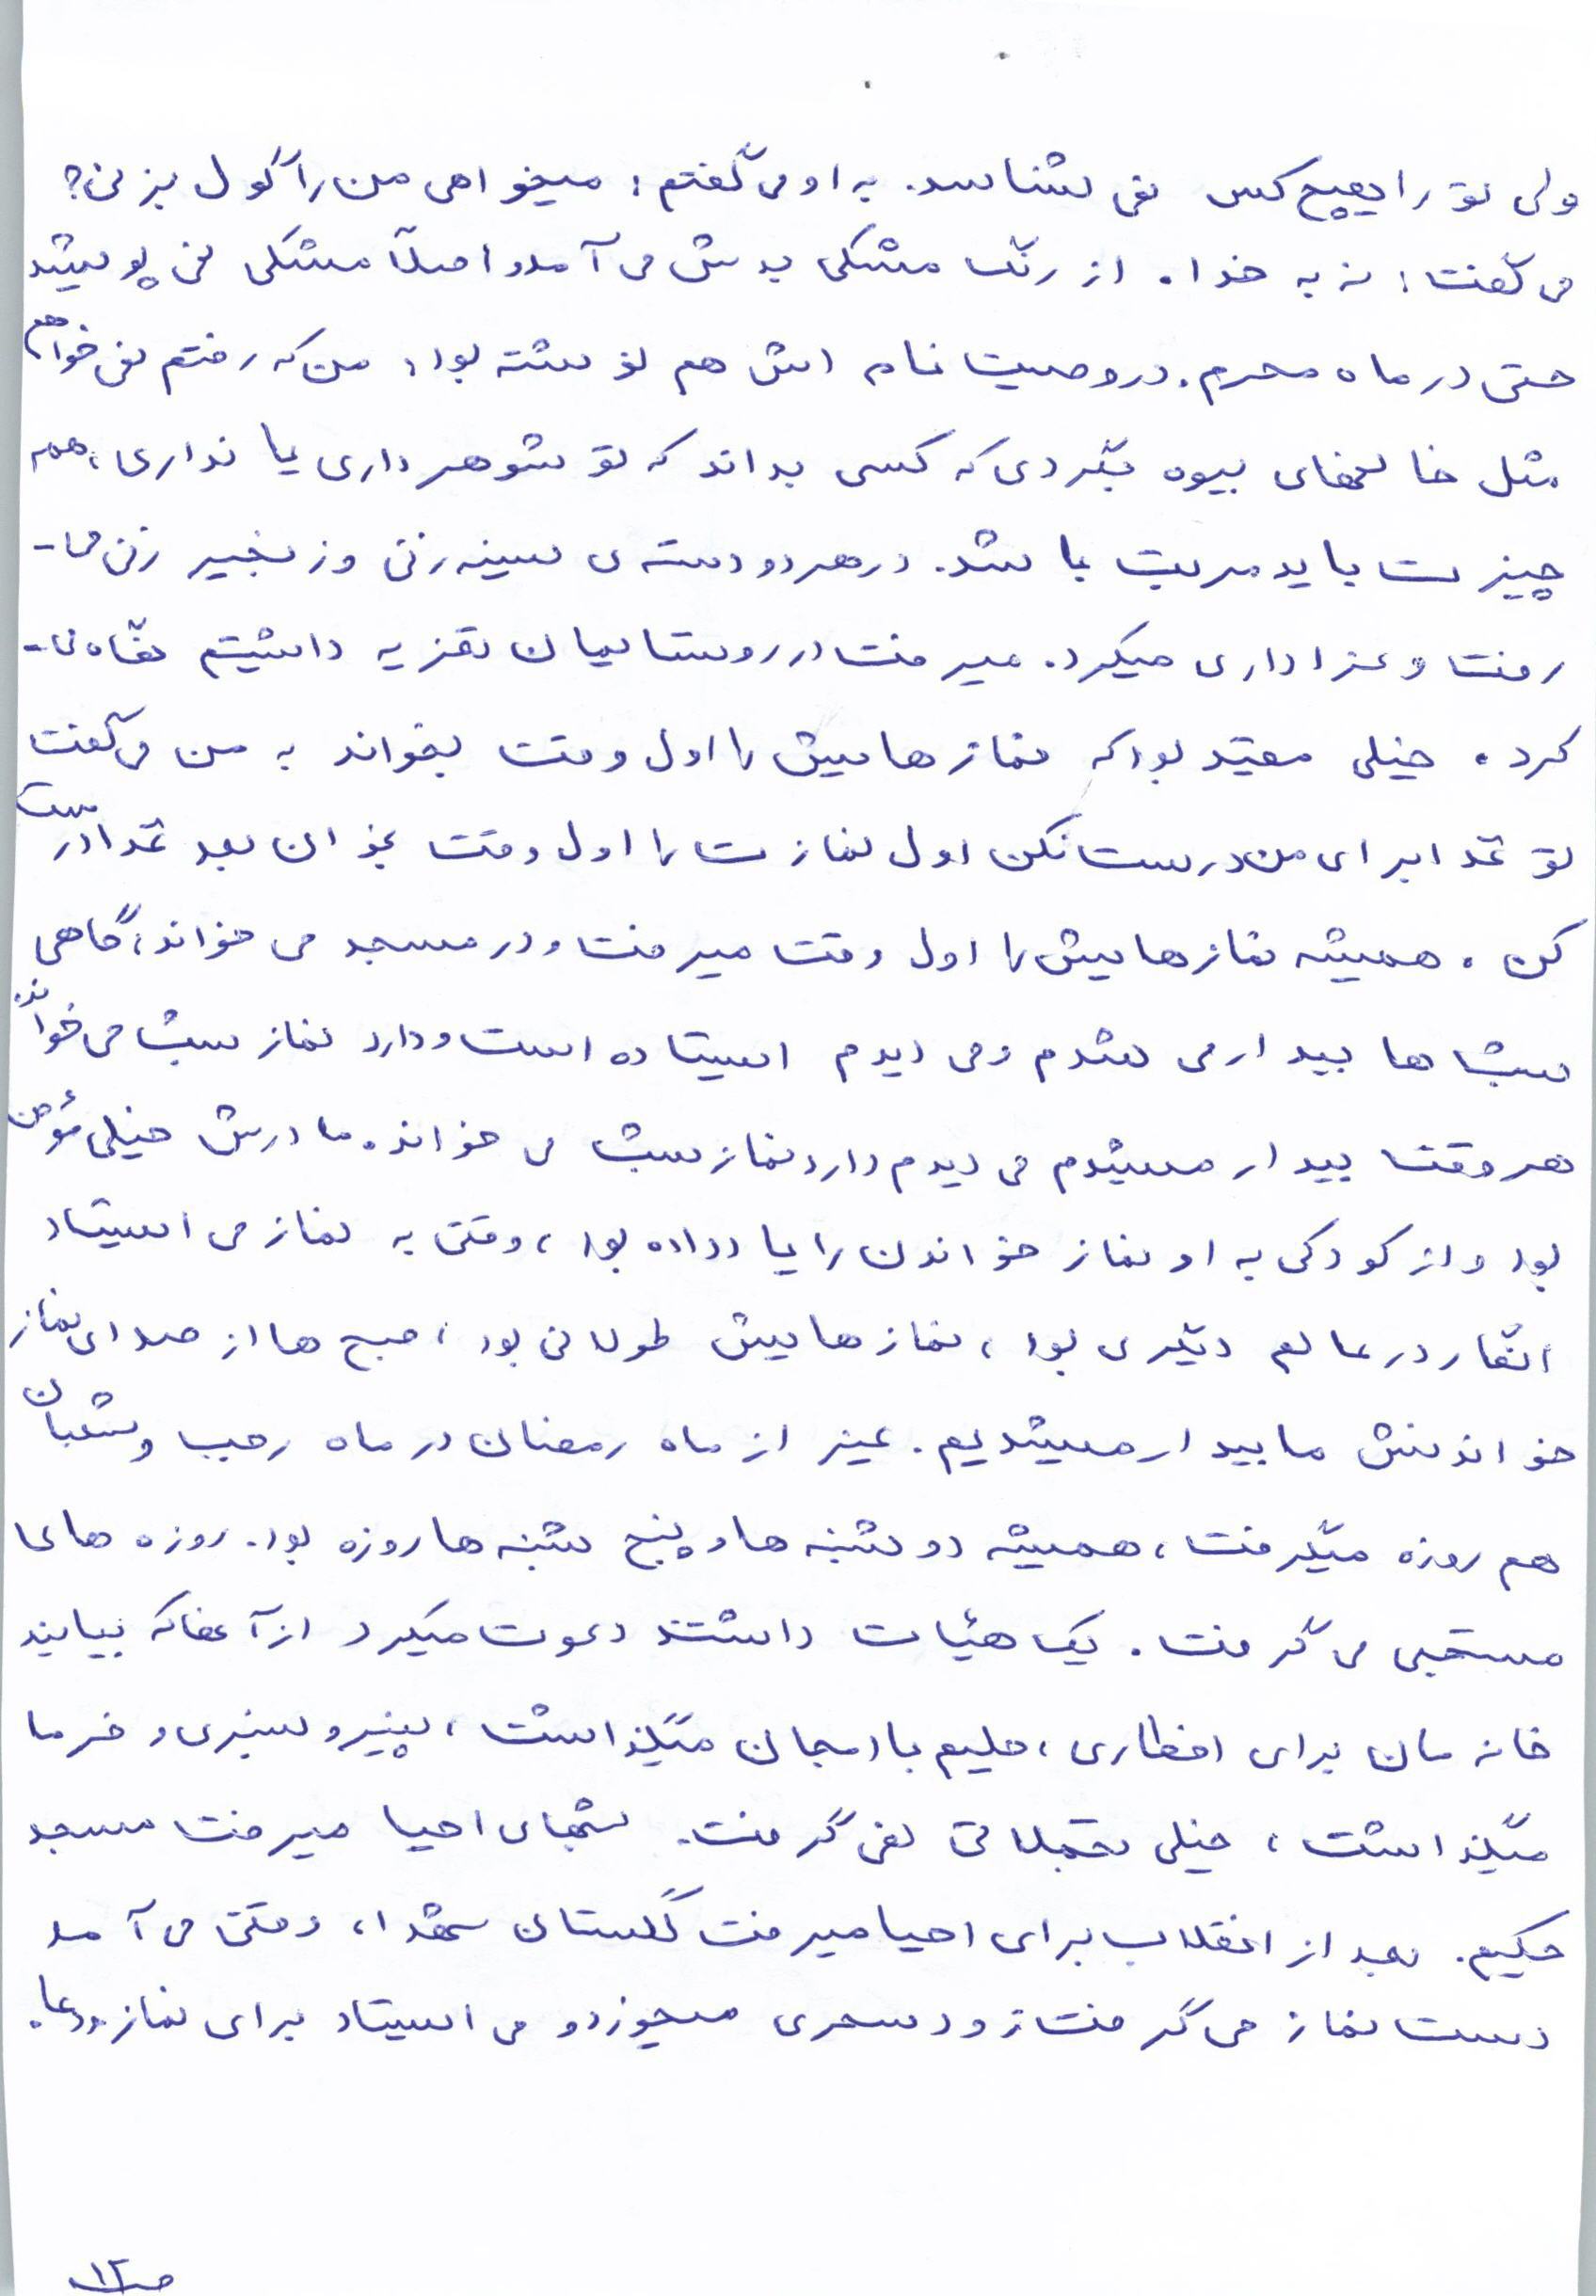 ولی تو را هیچ کس نمی شناسد. به او می گفتم: میخواهی من را گول بزنی؟
می گفت: نه به خدا. از رنگ مشکی بدش می آمد و اصلاً مشکی نمی پوشید
حتی در ماه محرم. در وصیت نامه اش هم نوشته بود: من که رفتم نمی خواهم
مثل خانمهای بیوه بگردی که کسی بداند که تو شوهر داری یا نداری، همه
چیزت باید مرتب باشد. در هر دو دسته ی سینه زنی و زنجیر زنی می-
رفت و عزاداری میکرد. میرفت در روستایمان تعزیه داشتیم نگاه می-
کرد. خیلی مقید بود که نمازهایش را اول وقت بخواند به من می گفت
تو غذا برای من درست نکن اول نمازت را اول وقت بخوان بعد غذا درست
کن. همیشه نمازهایش را اول وقت میرفت و در مسجد می خواند، گاهی
شب ها بیدار می شدم و می دیدم ایستاده است و دارد نماز شب می خواند.
هر وقت بیدار میشدم می دیدم دارد نماز شب می خواند. مادرش خیلی مؤمن
بود و از کودکی به او نماز خواندن را یاد داده بود، وقتی به نماز می ایستاد
انگار در عالم دیگری بود، نمازهایش طولانی بود، صبح ها از صدای نماز
خواندنش ما بیدار میشدیم. غیر از ماه رمضان در ماه رجب و شعبان
هم روزه میگرفت، همیشه دوشنبه ها و پنج شنبه ها روزه بود. روزه های
مستحبی می گرفت. یک هیأت داشتند دعوت میکرد از آنها که بیایند
خانه مان برای افطاری، حلیم بادمجان میگذاشت، پنیر و سبزی و خرما
میگذاشت، خیلی تجملاتی نمی گرفت. شبهای احیا میرفت مسجد
حکیم. بعد از انقلاب برای احیا میرفت گلستان شهدا، وقتی می آمد
دست نماز می گرفت زود سحری میخورد و می ایستاد برای نماز و دعا.
ص۱۲